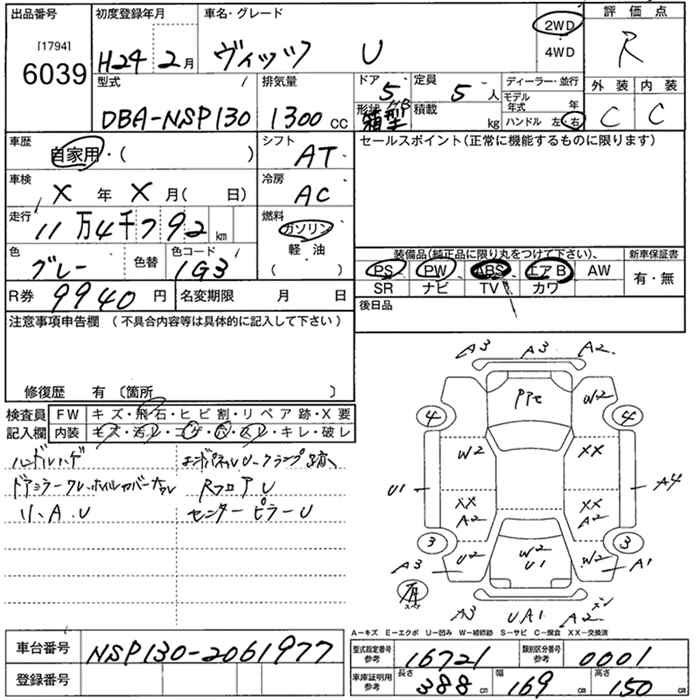 出品番号 初度登録年月 車名・グレード 評価点
[1794]
6039
H24 2月 ヴィッツ U 2WD 4WD R
型式 排気量 ドア 定員 ディーラー・並行 外装 内装
DBA-NSP130 1300 CC 5 5 人 モデル年式 年 C C
形状 箱型 積載 kg ハンドル 左・右
車歴 シフト セールスポイント(正常に機能するものに限ります)
自家用・( ) AT
車検 冷房
X 年 X 月( 日) AC
走行 燃料
11万4千792km ガソリン
色 色替 色コード 軽油
グレー 1G3 ( )
装備品(純正品に限り丸をつけて下さい)、 新車保証書
PS PW ABS エアB AW 有・無
SR ナビ TV カワ
R券 9940 円 名変期限 月 日 後日品
注意事項申告欄(不具合内容等は具体的に記入して下さい)
修復歴 有 〔箇所 〕
検査員 FW キズ・飛石・ヒビ割・リペア跡・X要
記入欄 内装 キズ・汚レ・コゲ・穴・スレ・キレ・破レ
ハンドルハゲ
ドアミラーワレ・ホイルカバー RフロアU
リ、A、U センターピラーU
A3 A3 A2
W2
4 4
W2 XX
U1 A4
XX XX
A2 A2
3 3
U2 W2 W2
A3 U1 A1
有
A3 UA1 A2
A−キズ E−エクボ U−凹み W−補修跡 S−サビ C−腐食 XX−交換済
車台番号 NSP130-2061977
登録番号
型式指定番号 参考 16721 類別区分番号 参考 0001
車庫証明用 参考 長さ 388 cm 幅 169 cm 高さ 150 cm